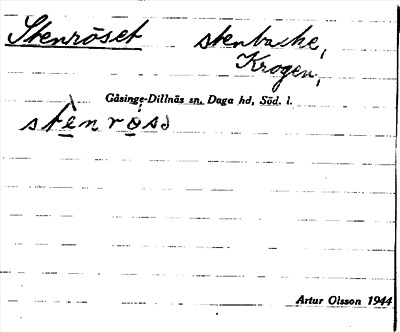 Stenröset stenbacke,
Krogen,
Gåsinge-Dillnäs sn. Daga hd, Söd. l.
Artur Olsson 1944